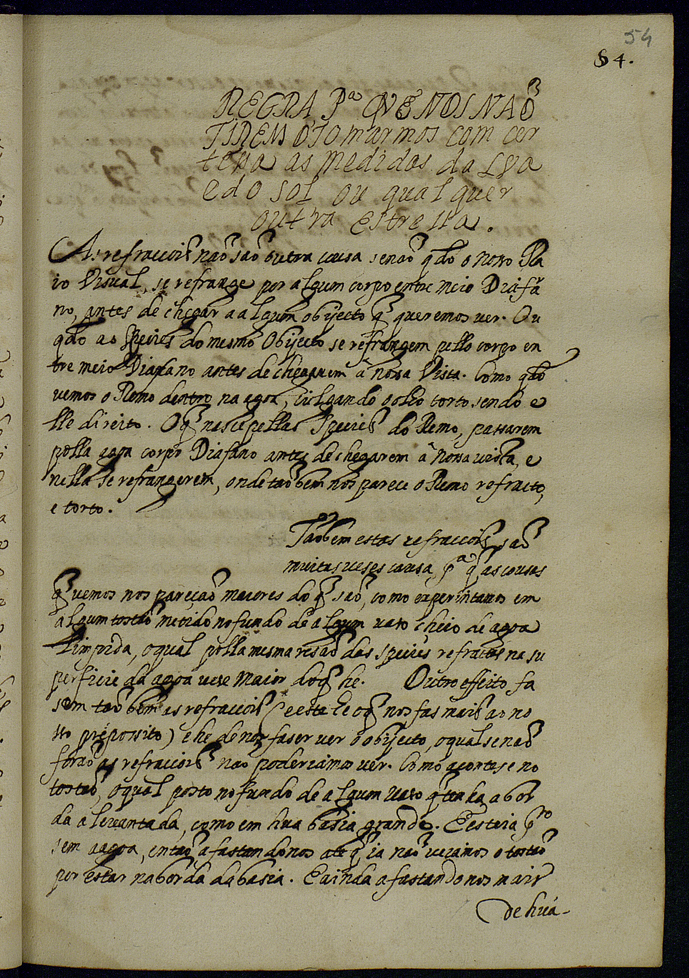 54
84.
REGRA Pª QVE NOS NAÕ
TIREM O TOmarmos com cer
teza as medidas da LVA
e do SOL ou qualquer
outra estrella.
As refraccois naõ saõ outra causa senaõ qdo o noso Ra
io Visual, se refrange por algum corpo entre meio Diafa
no, antes de chegar a algum obijecto q̃ queremos ver. Ou
qdo as Species do mesmo Obijecto se refrangem pello corpo en
tre meio Diafano antes de chegarem â nosa Vista. Como qdo
vemos o Remo dentro na agoa, iulgando o olho torto sendo e
lle direito. O q̃ nasce pellas Species do Remo, passarem
polla agoa corpo Diafano antes de chegarem â nosa vista, e
nella se refrangerem, onde taõbem nos parece o Remo refracto,
e torto.
Taõbem estas refraccois, saõ
muitas veses causa, pª q̃ as cousas
q̃ vemos nos pareçaõ maiores do q̃ saõ, como experimtamos em
algum tostaõ metido no fundo de algum vaso cheio de agoa
Limpida, o qual polla mesma resaõ das Species refractas na su
perficie da agoa vese Maior do q̃ he. Outro effeito fa
sem taõbem as refraccois (e esta he o q̃ nos fas mais ao no
sso preposito) e he de nos faser ver o obijecto, o qual se naõ
foraõ as refraccois naõ poderiamos ver. Como acontese no
tostaõ, o qual posto no fundo de algum vaso q̃ tenha a bor
da alevantada, como em hua basia grande. E esteia pro
sem agoa, entaõ afastandonos ate q̃ ia naõ veiamos o tostaõ
por estar na borda da basia. E ainda afastandonos mais
de hũa-